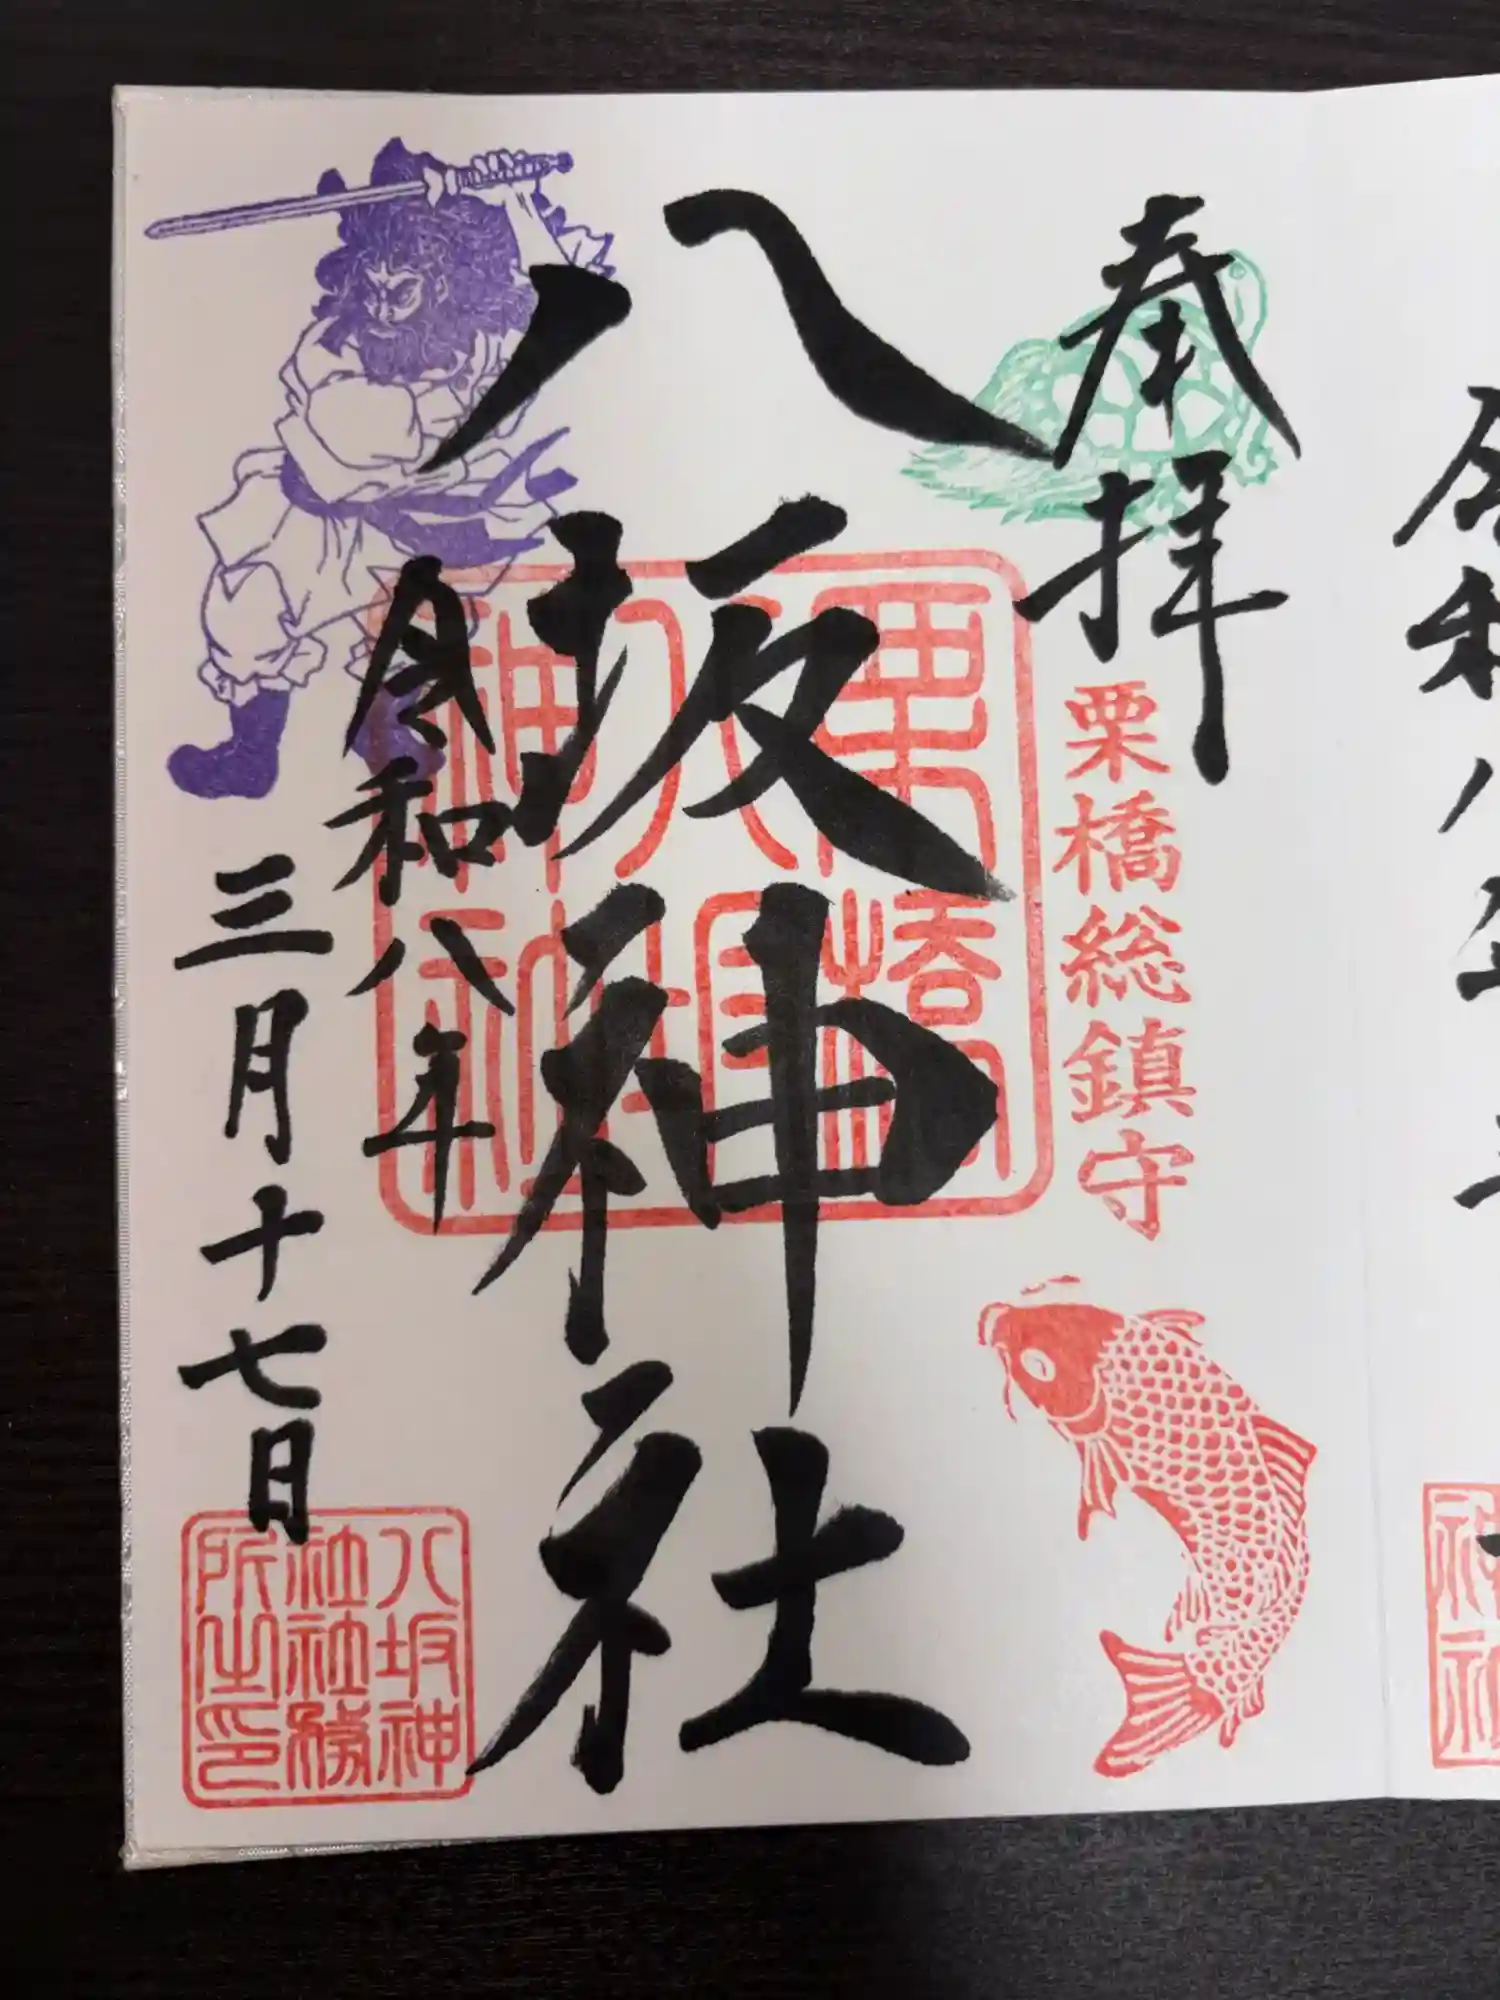 奉拝
栗橋総鎮守
八坂神社
栗橋
八坂
神社
令和八年
三月十七日
八坂神
社社務
所之印
令和八年三
神社